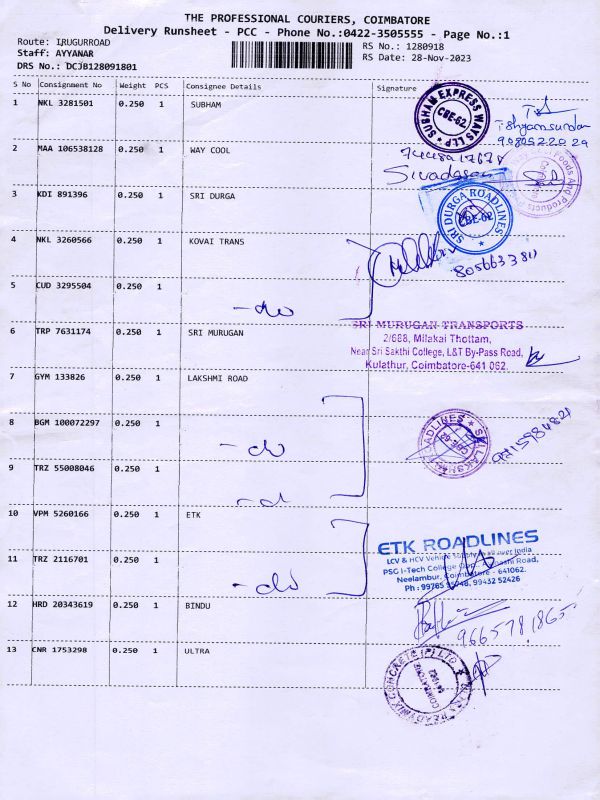 THE PROFESSIONAL COURIERS, COIMBATORE
Delivery Runsheet - PCC - Phone No.:0422-3505555 - Page No.:1
Route: IRUGURROAD
Staff: AYYANAR
DRS No.: DCJB128091801
RS No.: 1280918
RS Date: 28-Nov-2023
S No Consignment No Weight PCS Consignee Details Signature
1 NKL 3281501 0.250 1 SUBHAM
SUBHAM EXPRESS WAYS LLP
CBE-62
T Shyamsundar
2 MAA 106538128 0.250 1 WAY COOL
Sivadasan
Foods And Products
3 KDI 891396 0.250 1 SRI DURGA
SRI DURGA ROADLINES
CBE-62
4 NKL 3260566 0.250 1 KOVAI TRANS
8056633811
5 CUD 3295504 0.250 1
-do
6 TRP 7631174 0.250 1 SRI MURUGAN
SRI MURUGAN TRANSPORTS
2/688, Milakai Thottam,
Near Sri Sakthi College, L&T By-Pass Road,
Kulathur, Coimbatore-641 062.
7 GYM 133826 0.250 1 LAKSHMI ROAD
8 BGM 100072297 0.250 1
-do
SRI LAKSHMI ROADLINES
CBE-62
9715984821
9 TRZ 55008046 0.250 1
-do
10 VPM 5260166 0.250 1 ETK
ETK ROADLINES
LCV & HCV Vehicle Supply to all over India
PSG I-Tech College Opp. Avinashi Road,
Neelambur, Coimbatore - 641062.
Ph : 99765 95048, 99432 52426
11 TRZ 2116701 0.250 1
-do
12 HRD 20343619 0.250 1 BINDU
9665781865
13 CNR 1753298 0.250 1 ULTRA
COIMBATORE